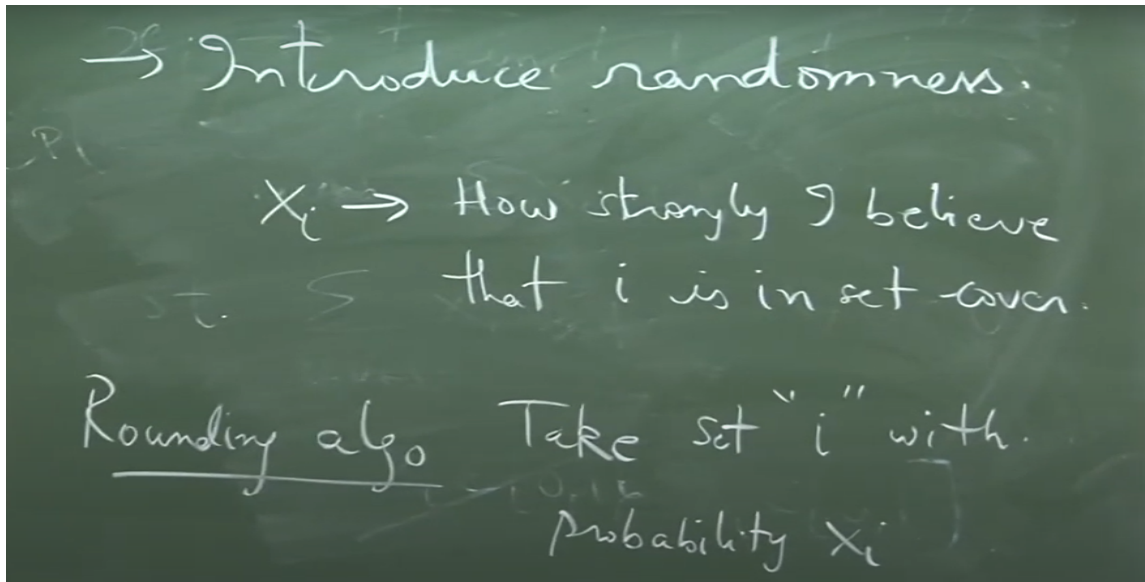 → Introduce randomness.
Xi → How strongly I believe
that i is in set cover.
Rounding algo Take set "i" with.
probability Xi